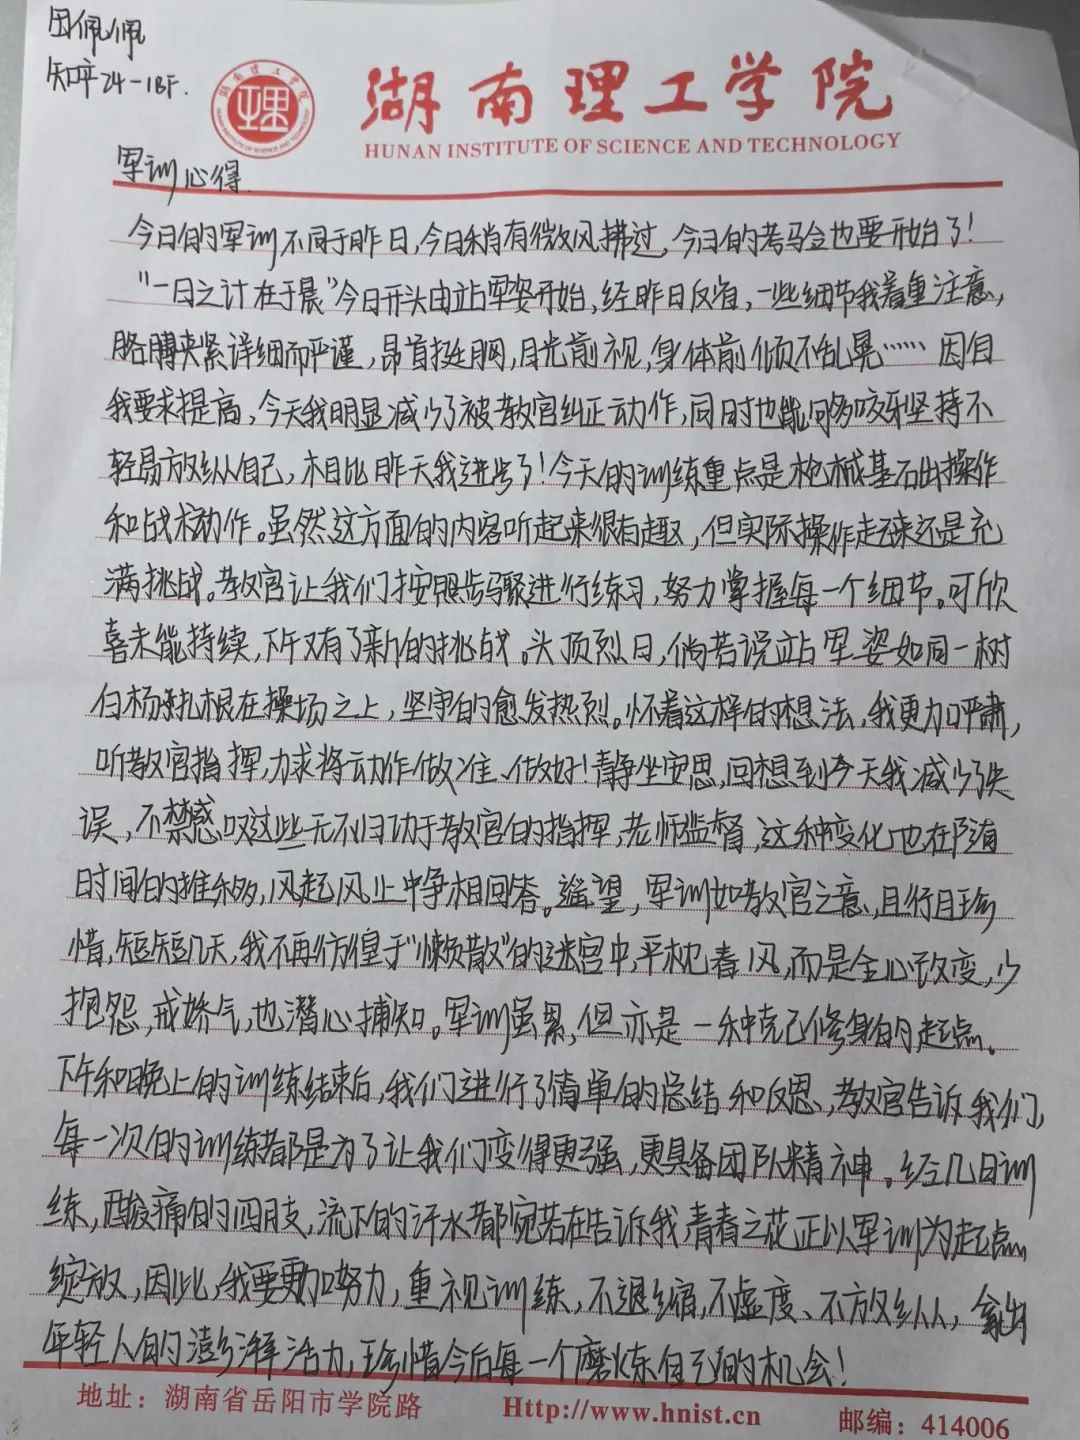 田佩佩
知产24-1BF.
湖南理工学院
HUNAN INSTITUTE OF SCIENCE AND TECHNOLOGY
军训心得
今日的军训不同于昨日,今日稍有微风拂过,今日的考验也要开始了!
"一日之计在于晨"今日开头由站军姿开始,经昨日反省,一些细节我着重注意,
胳膊夹紧详细而严谨,昂首挺胸,目光前视,身体前倾不乱晃……因自
我要求提高,今天我明显减少了被教官纠正动作,同时也能够咬牙坚持不
轻易放纵自己,相比昨天我进步了!今天的训练重点是枪械基础操作
和战术动作。虽然这方面的内容听起来很有趣,但实际操作起来还是充
满挑战。教官让我们按照步骤进行练习,努力掌握每一个细节。可欣
喜未能持续,下午又有了新的挑战。头顶烈日,倘若说站军姿如同一树
白杨扎根在操场之上,坚守的愈发热烈。怀着这样的想法,我更加严肃,
听教官指挥,力求将动作做准、做好!静坐安思,回想到今天我减少失
误,不禁感叹这些无不归功于教官的指挥,老师监督,这种变化也在随
时间的推移,风起风止中争相回答。遥望,军训如教官之意,且行且珍
惜,短短几天,我不再彷徨于"懒散"的迷宫中,平枕春风,而是全心改变,少
抱怨,戒娇气,也潜心捕知。军训虽累,但亦是一种克己修身的起点。
下午和晚上的训练结束后,我们进行了简单的总结和反思,教官告诉我们,
每一次的训练都是为了让我们变得更强,更具备团队精神。经几日训
练,酸痛的四肢,流下的汗水都宛若在告诉我青春之花正以军训为起点
绽放,因此,我要更加努力,重视训练,不退缩,不虚度、不放纵,拿出
年轻人的澎湃活力,珍惜今后每一个磨炼自己的机会!
地址:湖南省岳阳市学院路
Http://www.hnist.cn
邮编:414006